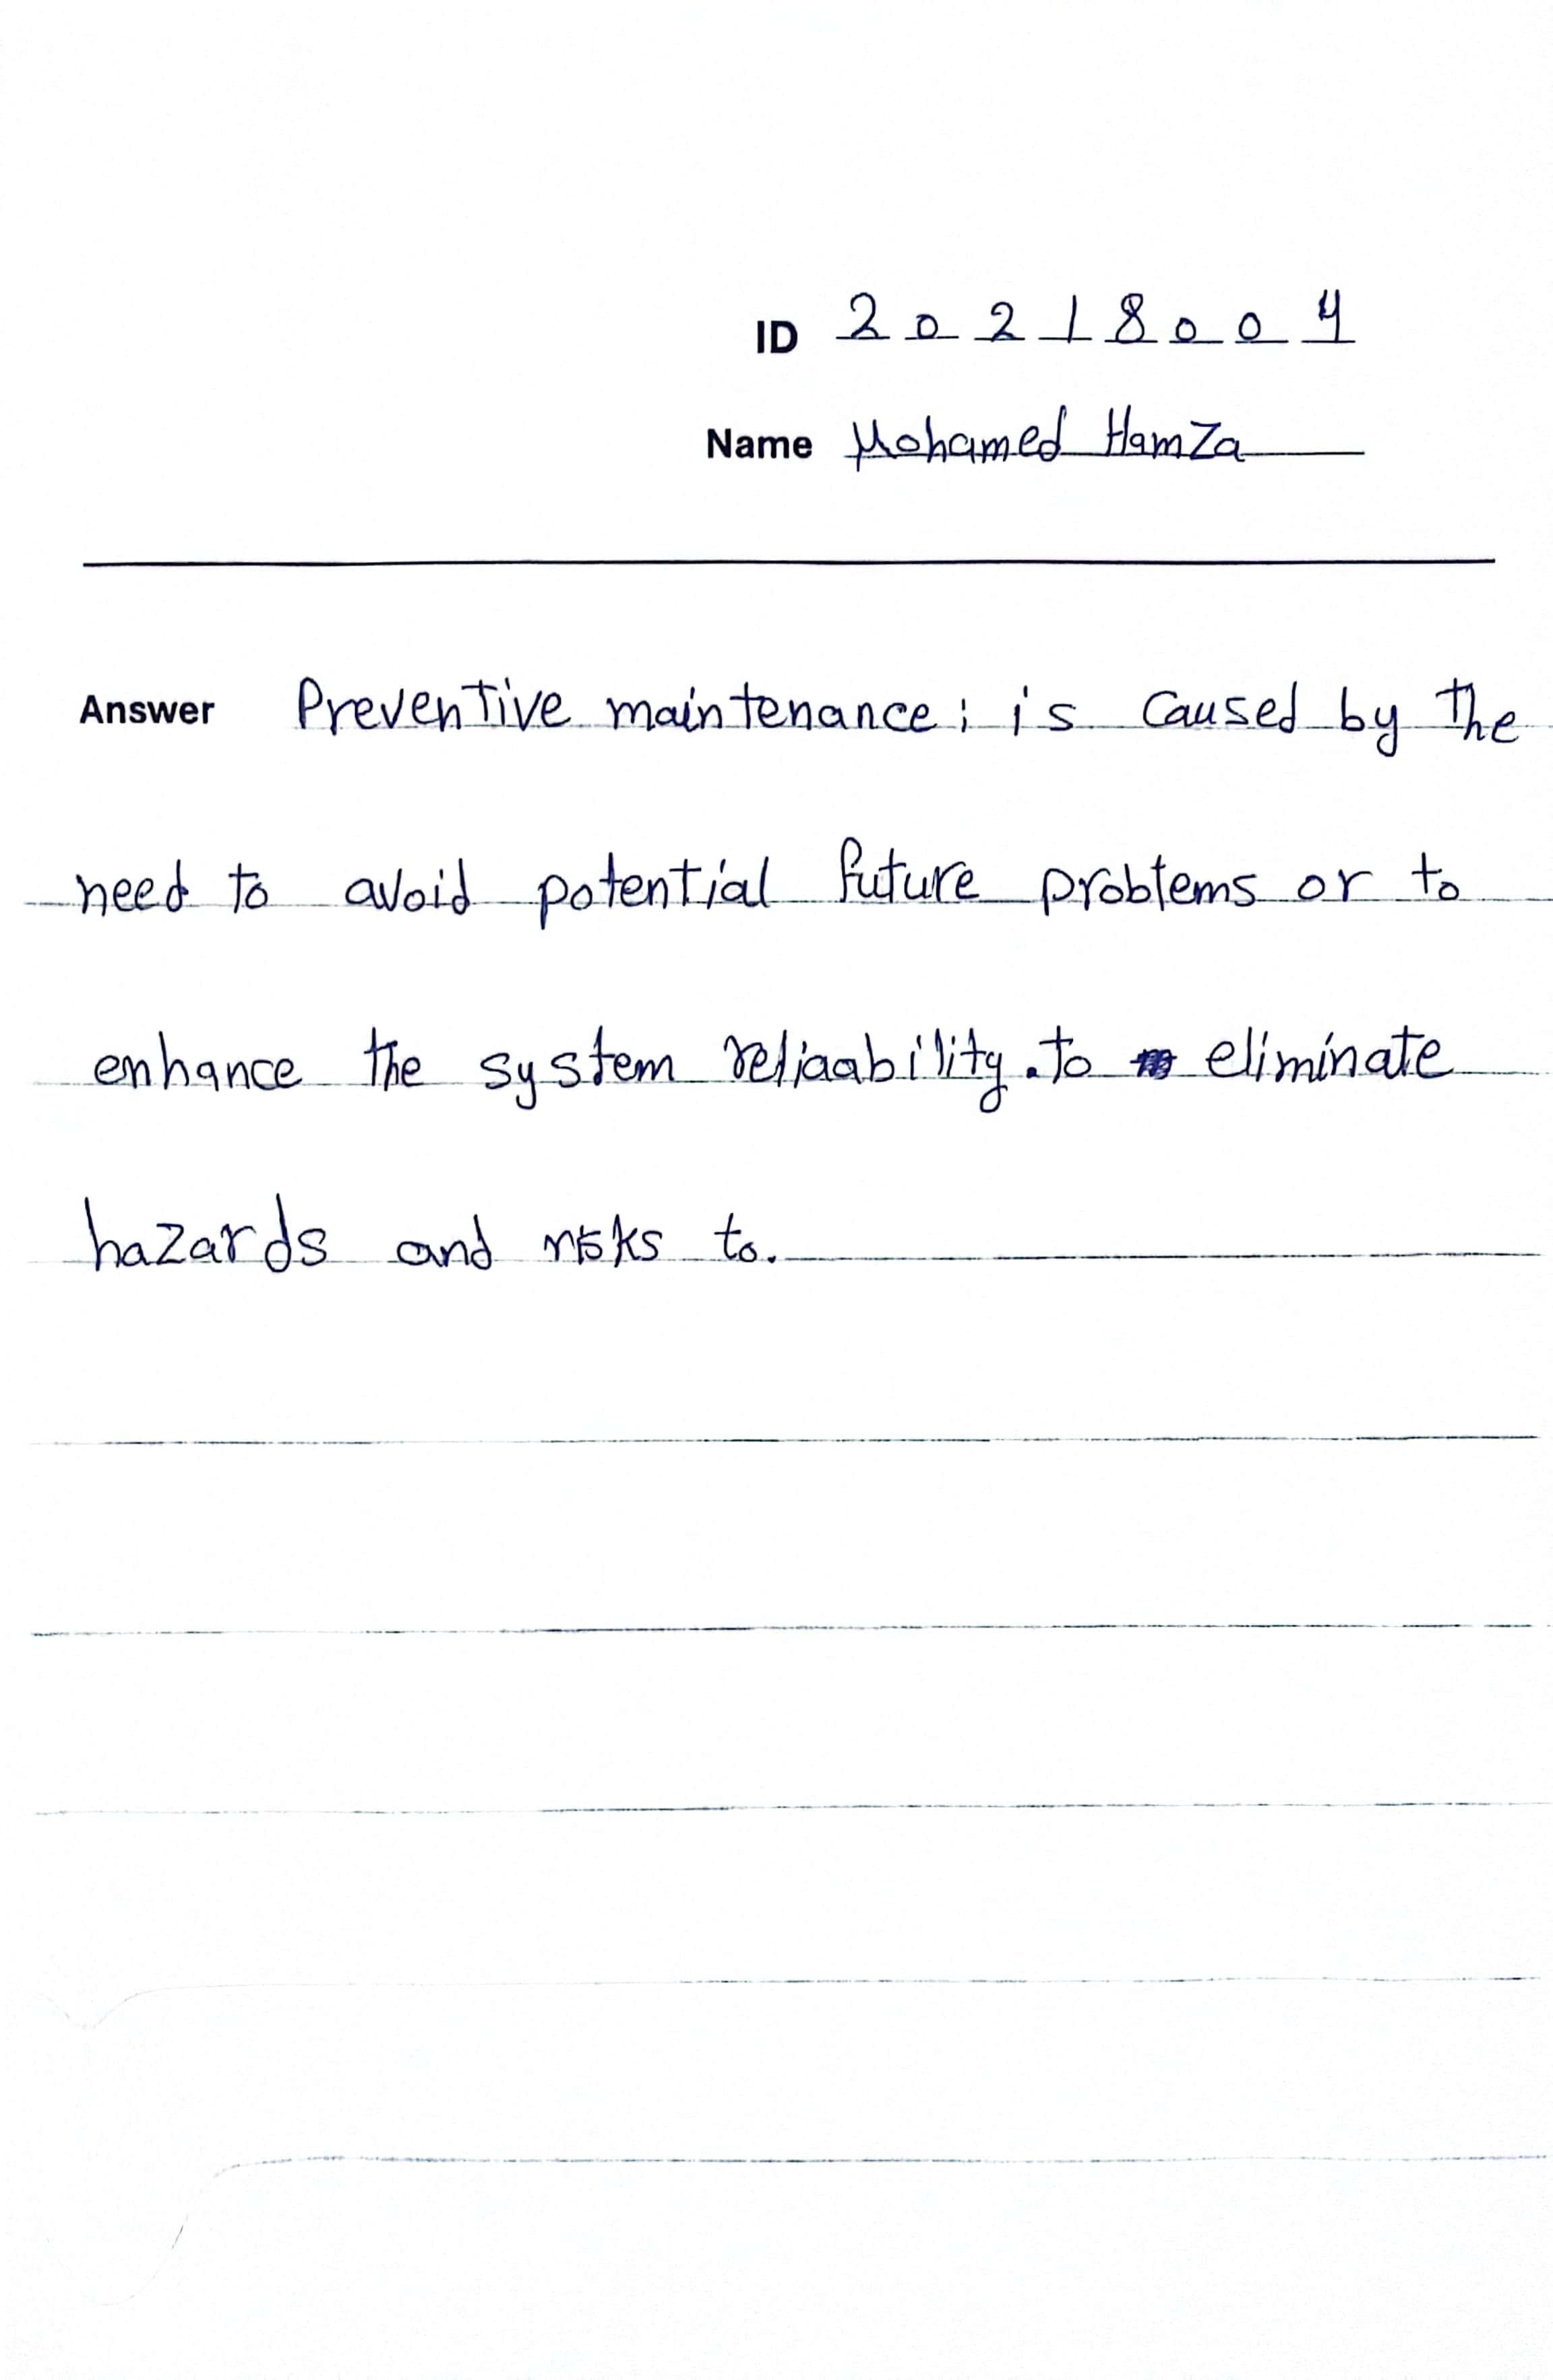 ID 20218004
Name Mohamed Hamza
Answer Preventive maintenance: is caused by the
need to avoid potential future problems or to
enhance the system reliaability. to eliminate
hazards and risks to.